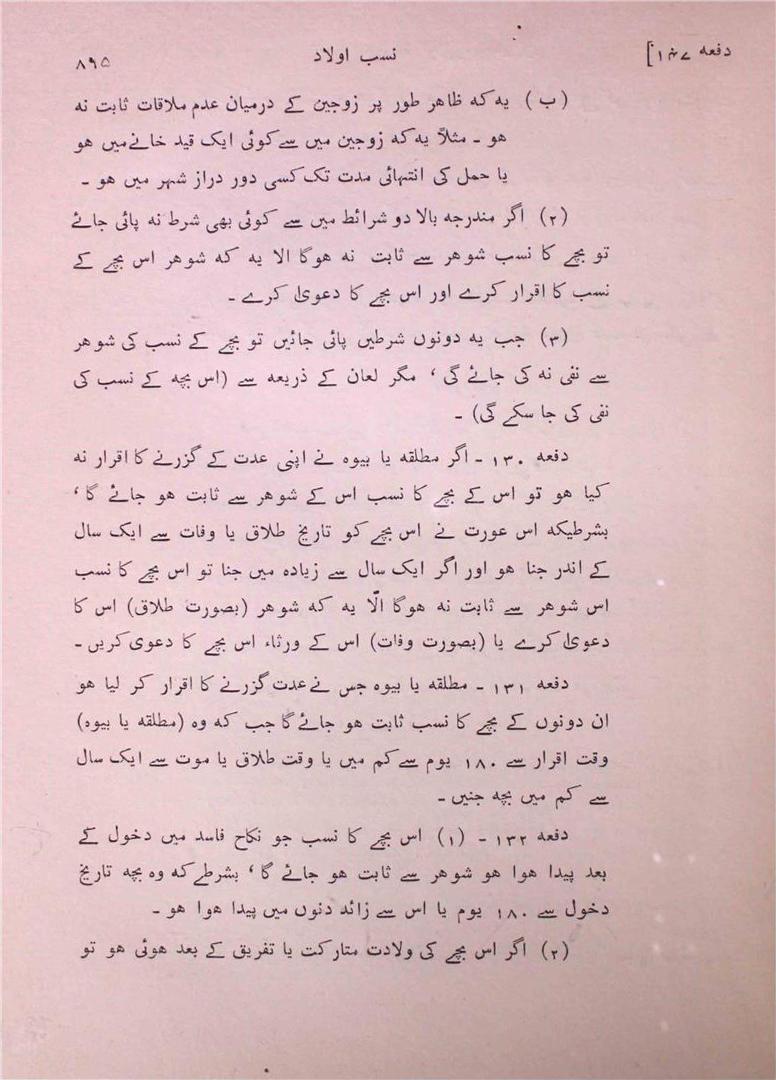 دفعہ ۱۴۷]
نسب اولاد
۸۹۵
(ب) یہ کہ ظاہر طور پر زوجین کے درمیان عدم ملاقات ثابت نہ
ہو ۔ مثلاً یہ کہ زوجین میں سے کوئی ایک قید خانے میں ہو
یا حمل کی انتہائی مدت تک کسی دور دراز شہر میں ہو ۔
(۲) اگر مندرجہ بالا دو شرائط میں سے کوئی بھی شرط نہ پائی جائے
تو بچے کا نسب شوہر سے ثابت نہ ہوگا الا یہ کہ شوہر اس بچے کے
نسب کا اقرار کرے اور اس بچے کا دعویٰ کرے ۔
(۳) جب یہ دونوں شرطیں پائی جائیں تو بچے کے نسب کی شوہر
سے نفی نہ کی جائے گی ، مگر لعان کے ذریعہ سے (اس بچہ کے نسب کی
نفی کی جا سکے گی) ۔
دفعہ ۱۳۰ ۔ اگر مطلقہ یا بیوہ نے اپنی عدت کے گزرنے کا اقرار نہ
کیا ہو تو اس کے بچے کا نسب اس کے شوہر سے ثابت ہو جائے گا ،
بشرطیکہ اس عورت نے اس بچے کو تاریخ طلاق یا وفات سے ایک سال
کے اندر جنا ہو اور اگر ایک سال سے زیادہ میں جنا تو اس بچے کا نسب
اس شوہر سے ثابت نہ ہوگا الّا یہ کہ شوہر (بصورت طلاق) اس کا
دعویٰ کرے یا (بصورت وفات) اس کے ورثاء اس بچے کا دعوی کریں ۔
دفعہ ۱۳۱ ۔ مطلقہ یا بیوہ جس نے عدت گزرنے کا اقرار کر لیا ہو
ان دونوں کے بچے کا نسب ثابت ہو جائے گا جب کہ وہ (مطلقہ یا بیوہ)
وقت اقرار سے ۱۸۰ یوم سے کم میں یا وقت طلاق یا موت سے ایک سال
سے کم میں بچہ جنیں ۔
دفعہ ۱۳۲ ۔ (۱) اس بچے کا نسب جو نکاح فاسد میں دخول کے
بعد پیدا ہوا ہو شوہر سے ثابت ہو جائے گا ، بشرطے کہ وہ بچہ تاریخ
دخول سے ۱۸۰ یوم یا اس سے زائد دنوں میں پیدا ہوا ہو ۔
(۲) اگر اس بچے کی ولادت متارکت یا تفریق کے بعد ہوئی ہو تو